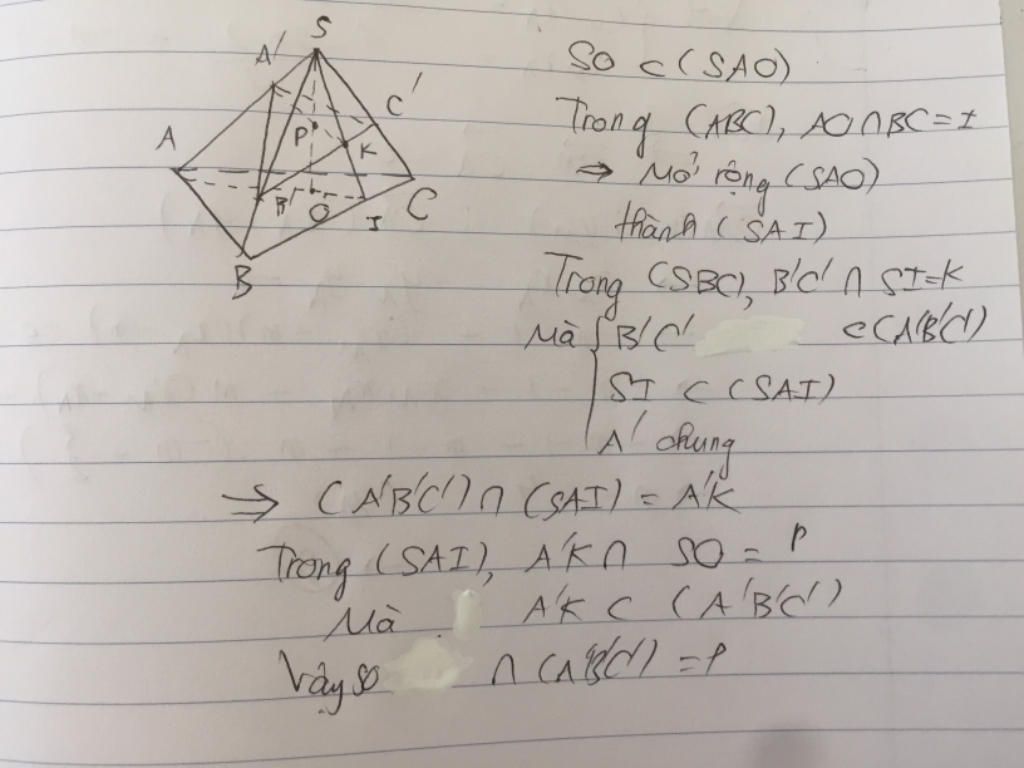 S
A'
C'
A
P
K
B'
O
I
C
B
SO ⊂ (SAO)
Trong (ABC), AO∩BC=I
⇒ Mở rộng (SAO)
thành (SAI)
Trong (SBC), B'C' ∩ SI=K
Mà { B'C' ⊂(A'B'C')
SI ⊂ (SAI)
A' chung
⇒ (A'B'C')∩(SAI) = A'K
Trong (SAI), A'K∩ SO = P
Mà A'K ⊂ (A'B'C')
Vậy SO ∩ (A'B'C') =P